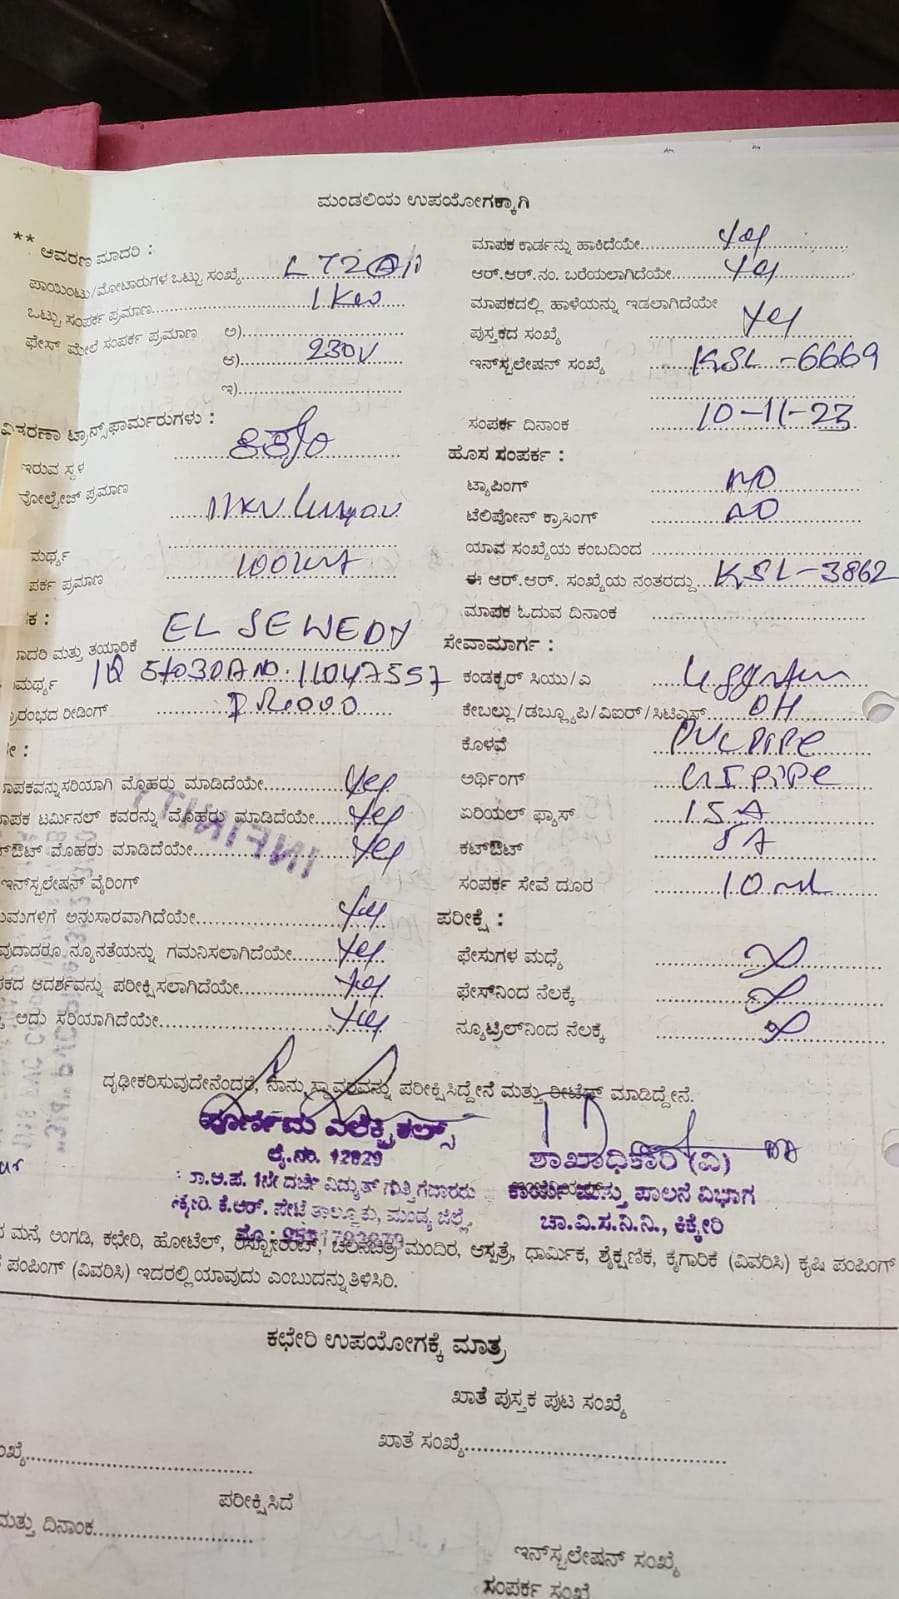 ಮಂಡಲಿಯ ಉಪಯೋಗಕ್ಕಾಗಿ
** ಆವರಣ ಮಾದರಿ :
ಪಾಯಿಂಟು/ಮೋಟಾರುಗಳ ಒಟ್ಟು ಸಂಖ್ಯೆ
ಒಟ್ಟು ಸಂಪರ್ಕ ಪ್ರಮಾಣ 1 Kw
ಫೇಸ್ ಮೇಲೆ ಸಂಪರ್ಕ ಪ್ರಮಾಣ ಅ)
ಆ) 230V
ಇ)
ವಿತರಣಾ ಟ್ರಾನ್ಸ್‌ಫಾರ್ಮರುಗಳು :
ಇರುವ ಸ್ಥಳ
ವೋಲ್ಟೇಜ್ ಪ್ರಮಾಣ
ಮರ್ಥ್ಯ
ಪರ್ಕ ಪ್ರಮಾಣ
ಕ :
ಾದರಿ ಮತ್ತು ತಯಾರಿಕೆ EL SEWEDY
ಮರ್ಥ್ಯ 11047557
ಾರಂಭದ ರೀಡಿಂಗ್
ೇ :
ಾಪಕವನ್ನು ಸರಿಯಾಗಿ ಮೊಹರು ಮಾಡಿದೆಯೇ Yes
ಾಪಕ ಟರ್ಮಿನಲ್ ಕವರನ್ನು ಮೊಹರು ಮಾಡಿದೆಯೇ Yes
ಔಟ್ ಮೊಹರು ಮಾಡಿದೆಯೇ Yes
ಇನ್‌ಸ್ಟಲೇಷನ್ ವೈರಿಂಗ್
ಯಮಗಳಿಗೆ ಅನುಸಾರವಾಗಿದೆಯೇ Yes
ವುದಾದರೂ ನ್ಯೂನತೆಯನ್ನು ಗಮನಿಸಲಾಗಿದೆಯೇ Yes
ಪಕದ ಆದರ್ಶವನ್ನು ಪರೀಕ್ಷಿಸಲಾಗಿದೆಯೇ Yes
ಅದು ಸರಿಯಾಗಿದೆಯೇ Yes
ಮಾಪಕ ಕಾರ್ಡನ್ನು ಹಾಕಿದೆಯೇ Yes
ಆರ್.ಆರ್.ನಂ. ಬರೆಯಲಾಗಿದೆಯೇ Yes
ಮಾಪಕದಲ್ಲಿ ಹಾಳೆಯನ್ನು ಇಡಲಾಗಿದೆಯೇ Yes
ಪುಸ್ತಕದ ಸಂಖ್ಯೆ
ಇನ್‌ಸ್ಟಲೇಷನ್ ಸಂಖ್ಯೆ KSL-6669
ಸಂಪರ್ಕ ದಿನಾಂಕ 10-11-23
ಹೊಸ ಸಂಪರ್ಕ :
ಟ್ಯಾಪಿಂಗ್ NO
ಟೆಲಿಫೋನ್ ಕ್ರಾಸಿಂಗ್ NO
ಯಾವ ಸಂಖ್ಯೆಯ ಕಂಬದಿಂದ
ಈ ಆರ್.ಆರ್. ಸಂಖ್ಯೆಯ ನಂತರದ್ದು KSL-3862
ಮಾಪಕ ಓದುವ ದಿನಾಂಕ
ಸೇವಾಮಾರ್ಗ :
ಕಂಡಕ್ಟರ್ ಸಿಯು/ಎ
ಕೇಬಲ್ಲು/ಡಬ್ಲ್ಯೂಪಿ/ವಿಐರ್/ಸಿಟಿಎಸ್ OH
ಕೊಳವೆ PVC PIPE
ಅರ್ಥಿಂಗ್ PIPE
ಏರಿಯಲ್ ಫ್ಯೂಸ್ 15A
ಕಟ್‌ಔಟ್ 5A
ಸಂಪರ್ಕ ಸೇವೆ ದೂರ
ಪರೀಕ್ಷೆ :
ಫೇಸುಗಳ ಮಧ್ಯೆ
ಫೇಸ್‌ನಿಂದ ನೆಲಕ್ಕೆ
ನ್ಯೂಟ್ರಲ್‌ನಿಂದ ನೆಲಕ್ಕೆ
ದೃಢೀಕರಿಸುವುದೇನೆಂದರೆ, ನಾನು ಸ್ಥಾವರವನ್ನು ಪರೀಕ್ಷಿಸಿದ್ದೇನೆ ಮತ್ತು ರೀಟೆಸ್ಟ್ ಮಾಡಿದ್ದೇನೆ.
ಪೂರ್ಣಿಮ ಎಲೆಕ್ಟ್ರಿಕಲ್ಸ್
ಲೈ.ನಂ. 12829
1ನೇ ದರ್ಜೆ ವಿದ್ಯುತ್ ಗುತ್ತಿಗೆದಾರರು
ಕ್ಕೇರಿ. ಕೆ.ಆರ್. ಪೇಟೆ ತಾಲ್ಲೂಕು, ಮಂಡ್ಯ ಜಿಲ್ಲೆ.
ಶಾಖಾಧಿಕಾರಿ (ವಿ)
ಕಾರ್ಯ ಮತ್ತು ಪಾಲನೆ ವಿಭಾಗ
ಚಾ.ವಿ.ಸ.ನಿ.ನಿ., ಕಿಕ್ಕೇರಿ
ಮನೆ, ಅಂಗಡಿ, ಕಛೇರಿ, ಹೋಟೆಲ್, ರೆಸ್ಟೋರೆಂಟ್, ಚಲನಚಿತ್ರ ಮಂದಿರ, ಆಸ್ಪತ್ರೆ, ಧಾರ್ಮಿಕ, ಶೈಕ್ಷಣಿಕ, ಕೈಗಾರಿಕೆ (ವಿವರಿಸಿ) ಕೃಷಿ ಪಂಪಿಂಗ್
ಪಂಪಿಂಗ್ (ವಿವರಿಸಿ) ಇದರಲ್ಲಿ ಯಾವುದು ಎಂಬುದನ್ನು ತಿಳಿಸಿರಿ.
ಕಛೇರಿ ಉಪಯೋಗಕ್ಕೆ ಮಾತ್ರ
ಖಾತೆ ಪುಸ್ತಕ ಪುಟ ಸಂಖ್ಯೆ
ಖಾತೆ ಸಂಖ್ಯೆ
ಂಖ್ಯೆ
ಪರೀಕ್ಷಿಸಿದೆ
ಮತ್ತು ದಿನಾಂಕ
ಇನ್‌ಸ್ಟಲೇಷನ್ ಸಂಖ್ಯೆ
ಸಂಪರ್ಕ ಸಂಖ್ಯೆ